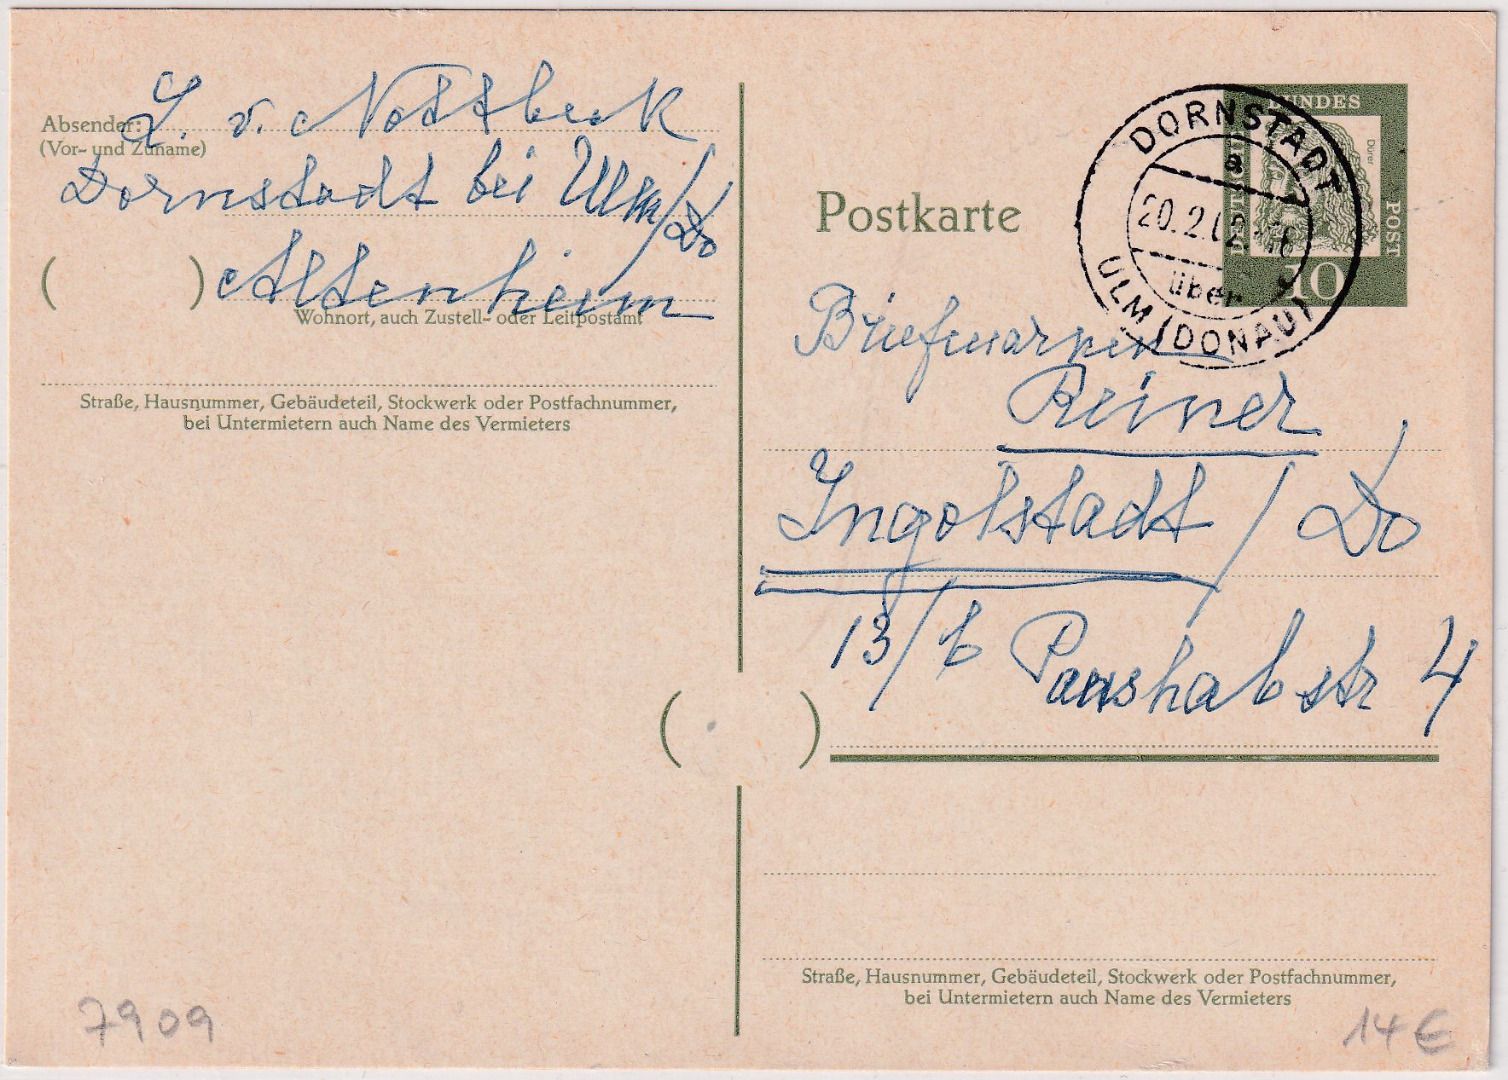 Absender:
(Vor- und Zuname)
L. v. Nottbeck
Dornstadt bei Ulm/Do
( ) Altenheim
Wohnort, auch Zustell- oder Leitpostamt
Straße, Hausnummer, Gebäudeteil, Stockwerk oder Postfachnummer,
bei Untermietern auch Name des Vermieters
7909
Postkarte
DEUTSCHE
BUNDES
POST
Dürer
10
DORNSTADT
a
20.2.62-18
über
ULM (DONAU)
Briefmarken
Reiner
Ingolstadt / Do
13/b
4
( )
Straße, Hausnummer, Gebäudeteil, Stockwerk oder Postfachnummer,
bei Untermietern auch Name des Vermieters
14 €